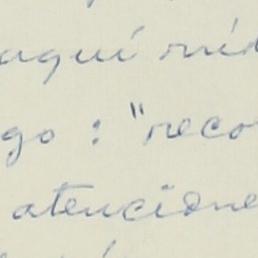 aquí mid
go : "reco
atencione